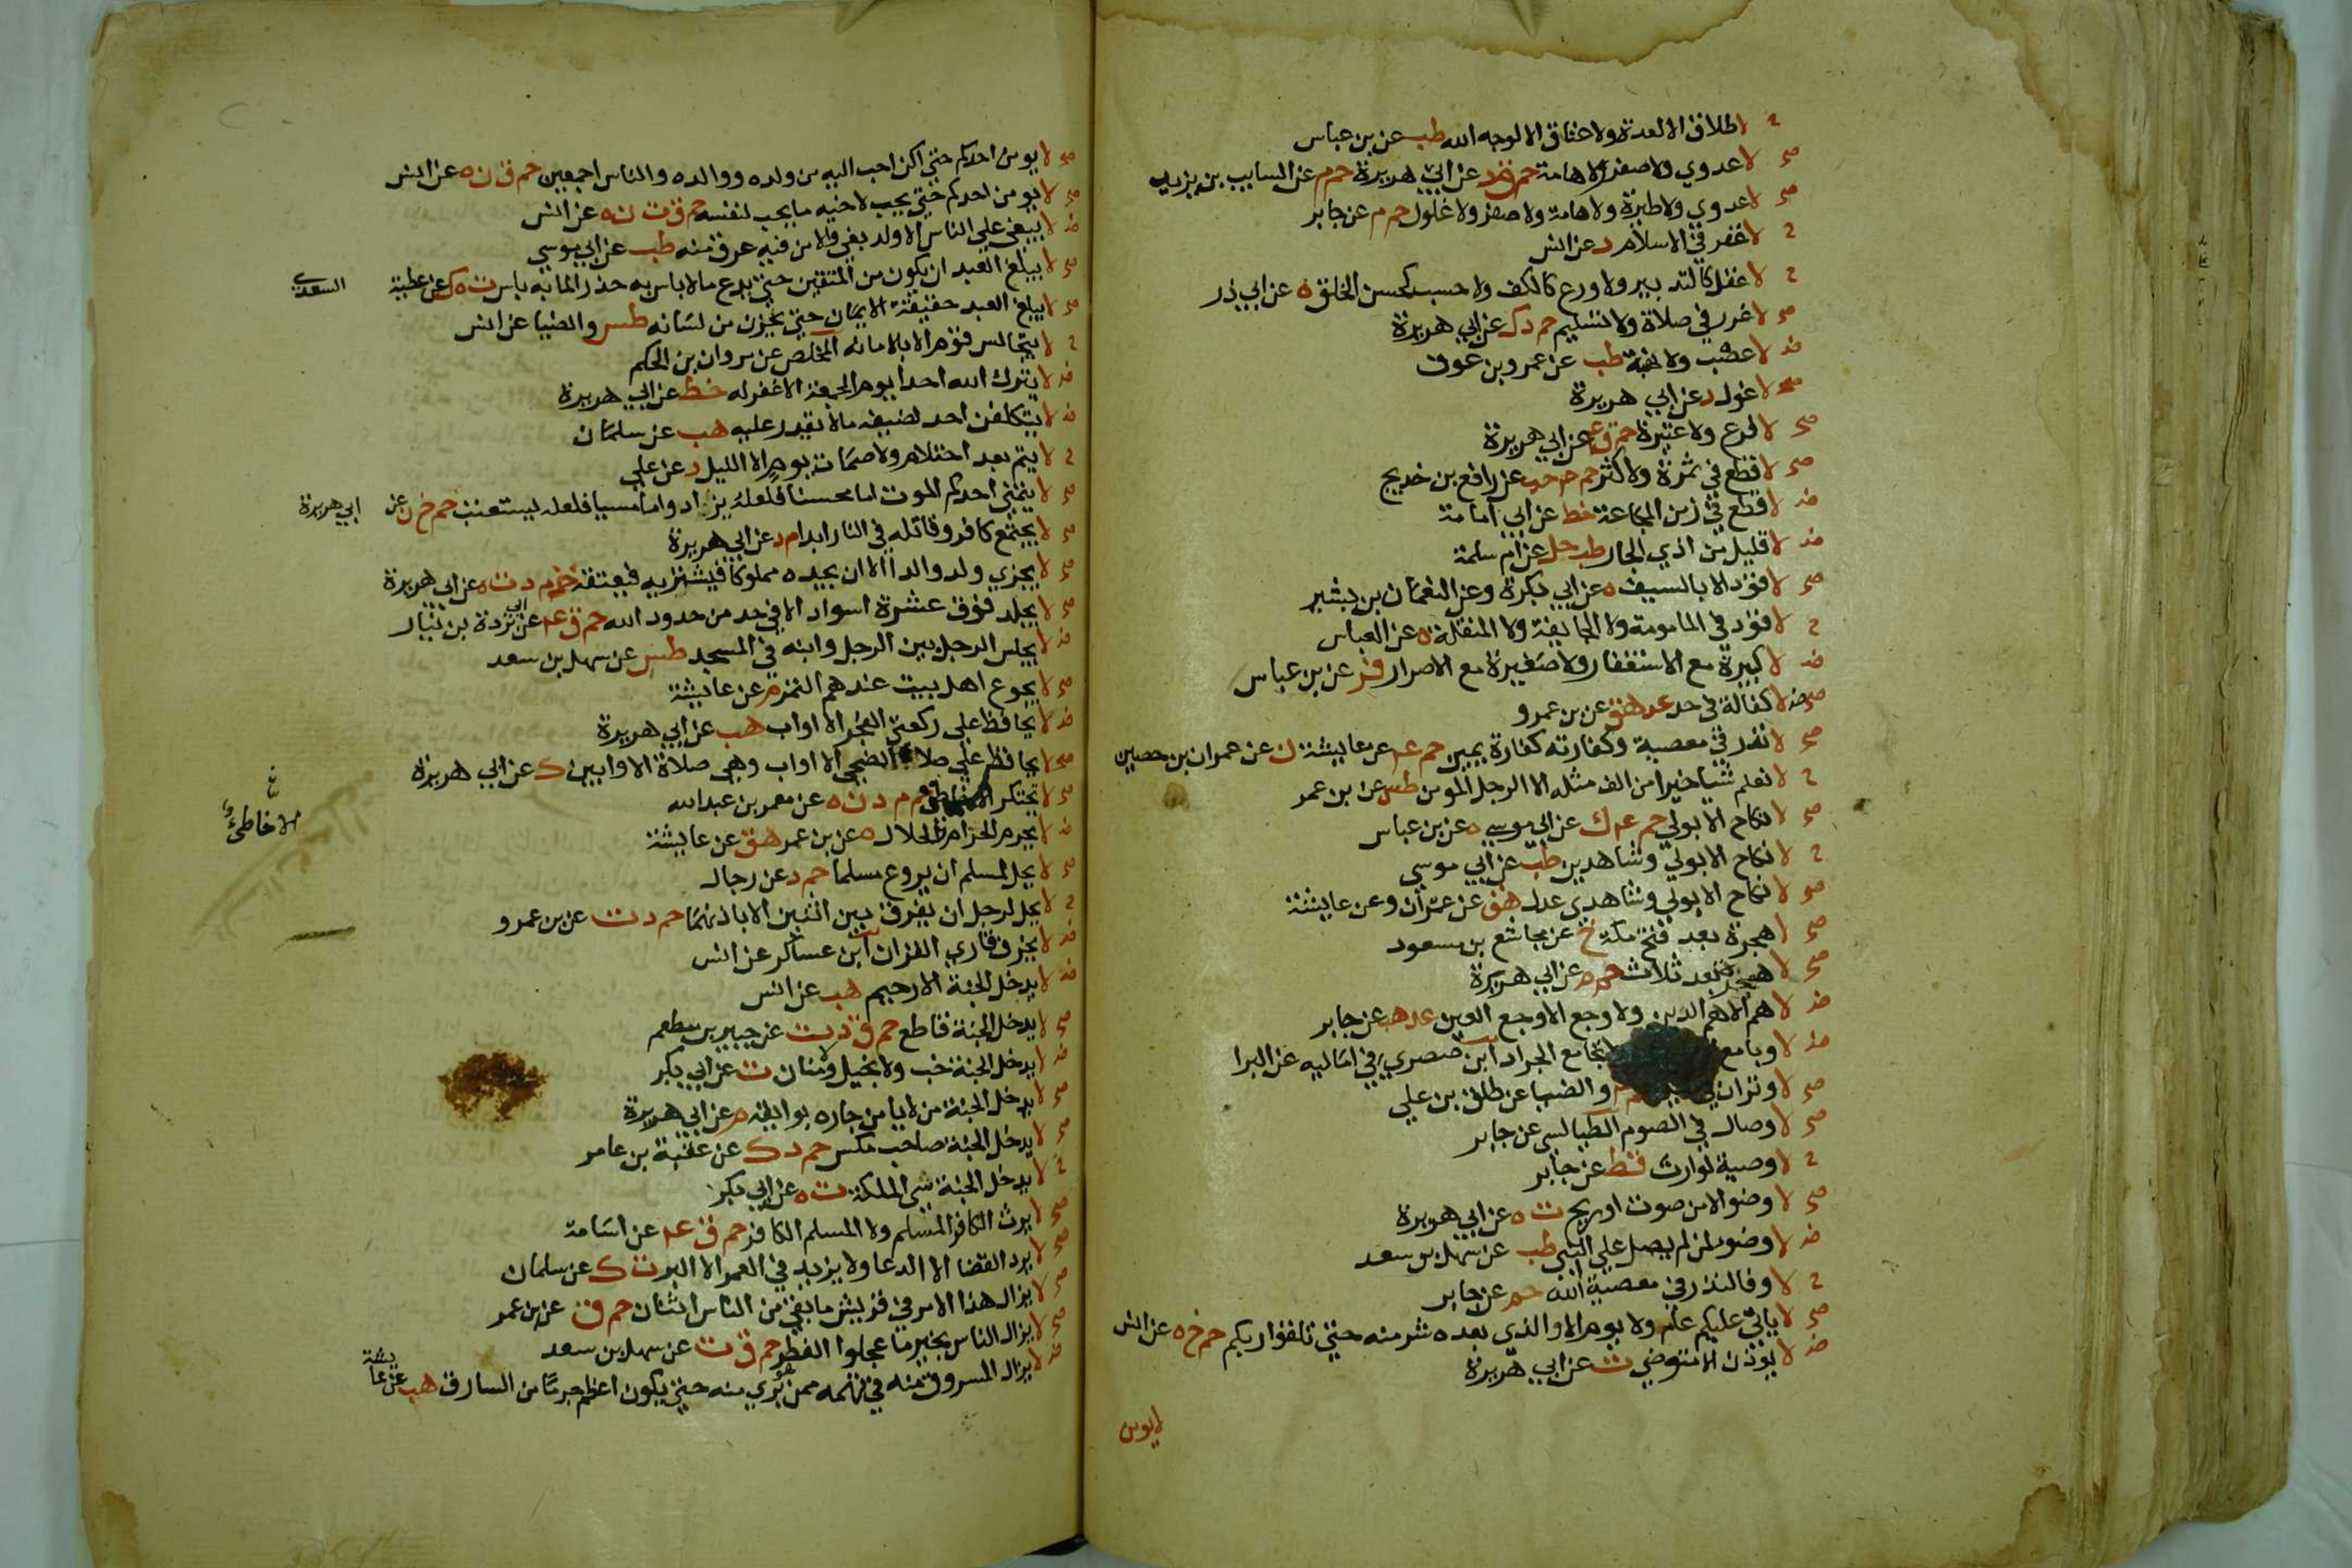 ح لا طلاق الا لعدة ولا عتاق الا لوجه الله طب عن بن عباس
صح لا عدوي ولا صفر ولا هامة حم ق د عن ابي هريرة حم م عن السايب بن يزيد
صح لا عدوي ولا طيرة ولا هامة ولا صفر ولا غلول حم م عن جابر
ح لا عقر في الاسلام د عن انس
ح لا عقل كالتدبير ولا ورع كالكف ولا حسب كحسن الخلق ه عن ابي ذر
صح لا غرر في صلاة ولا تسليم حم د ك عن ابي هريرة
ض لا غصب ولا نهبة طب عن عمرو بن عوف
صح لا غول د عن ابي هريرة
صح لا فرع ولا عتيرة حم ق عه عن ابي هريرة
صح لا قطع في ثمرة ولا كثر حم عه حب عن رافع بن خديج
ض لا قطع في زمن المجاعة خط عن ابي امامة
ض لا قليل من اذي الجار طب حل عن ام سلمة
صح لا قود الا بالسيف ه عن ابي بكرة وعن النعمان بن بشير
ح لا قود في المامومة ولا الجايفة ولا المنقلة ه عن العباس
ض لا كبيرة مع الاستغفار ولا صغيرة مع الاصرار فر عن بن عباس
ض لا كفالة في حد عد هق عن بن عمرو
صح لا نذر في معصية وكفارته كفارة يمين حم عه عن عايشة ن عن عمران بن حصين
ح لا نعلم شيا خيرا من الف مثله الا الرجل المومن طس عن بن عمر
صح لا نكاح الا بولي حم عه ك عن ابي موسي ه عن بن عباس
ح لا نكاح الا بولي وشاهدين طب عن ابي موسي
صح لا نكاح الا بولي وشاهدي عدل هق عن عمران وعن عايشة
صح لا هجرة بعد فتح مكة خ عن مجاشع بن مسعود
صح لا هجرة بعد ثلاث حم م عن ابي هريرة
ض لا هم الا هم الدين ولا وجع الا وجع العين عد هب عن جابر
ض لا وبا مع الجراد ابن صصري في اماليه عن البرا
صح لا وتران في والضيا عن طلق بن علي
صح لا وصال في الصوم الطيالسي عن جابر
ح لا وصية لوارث قط عن جابر
صح لا وضو الا من صوت او ريح ت ه عن ابي هريرة
ض لا وضو لمن لم يصل علي النبي طب عن سهل بن سعد
ح لا وفا لنذر في معصية الله حم عن جابر
صح لا ياتي عليكم عام ولا يوم الا والذي بعده شر منه حتي تلقوا ربكم حم خ ه عن انس
ض لا يوذن الا متوضي ت عن ابي هريرة
لا يومن
صح لا يومن احدكم حتي اكون احب اليه من ولده ووالده والناس اجمعين حم ق ن ه عن انس
صح لا يومن احدكم حتي يحب لاخيه ما يحب لنفسه حم ق ت ن ه عن انس
ض لا يبغي علي الناس الا ولد بغي والا من فيه عرق منه طب عن ابي موسي
صح لا يبلغ العبد ان يكون من المتقين حتي يدع ما لا باس به حذرا لما به باس ت ه ك عن عطية السعدي
صح لا يبلغ العبد حقيقة الايمان حتي يخزن من لسانه طس والضيا عن انس
ح لا يتجالس قوم الا بالامانة المخلص عن مروان بن الحكم
ض لا يترك الله احدا يوم الجمعة الا غفر له خط عن ابي هريرة
ض لا يتكلفن احد لضيفه ما لا يقدر عليه هب عن سلمان
ح لا يتم بعد احتلام ولا صمات يوم الا الليل د عن علي
صح لا يتمني احدكم الموت اما محسنا فلعله يزداد واما مسيا فلعله يستعتب حم خ ن عن ابي هريرة
صح لا يجتمع كافر وقاتله في النار ابدا م د عن ابي هريرة
صح لا يجزي ولد والدا الا ان يجده مملوكا فيشتريه فيعتقه خد م د ت ه عن ابي هريرة
صح لا يجلد فوق عشرة اسواط الا في حد من حدود الله حم ق عه عن ابي بردة بن نيار
ض لا يجلس الرجل بين الرجل وابنه في المسجد طس عن سهل بن سعد
صح لا يجوع اهل بيت عندهم التمر م عن عايشة
ض لا يحافظ علي ركعتي الفجر الا اواب هب عن ابي هريرة
صح لا يحافظ علي صلاة الضحي الا اواب وهي صلاة الاوابين ك عن ابي هريرة
صح لا يحتكر الا حم م د ت ه عن معمر بن عبد الله
خ
الا خاطئ
ض لا يحرم الحرام الحلال ه عن بن عمر هق عن عايشة
صح لا يحل لمسلم ان يروع مسلما حم د عن رجال
ح لا يحل لرجل ان يفرق بين اثنين الا باذنهما حم د ت عن بن عمرو
ض لا يخرف قاري القران ابن عساكر عن انس
ض لا يدخل الجنة الا رحيم هب عن انس
صح لا يدخل الجنة قاطع حم ق د ت عن جبير بن مطعم
ض لا يدخل الجنة خب ولا بخيل ولا منان ت عن ابي بكر
صح لا يدخل الجنة من لا يامن جاره بوايقه م عن ابي هريرة
صح لا يدخل الجنة صاحب مكس حم د ك عن عقبة بن عامر
ح لا يدخل الجنة سي الملكة ت ه عن ابي بكر
صح لا يرث الكافر المسلم ولا المسلم الكافر حم ق عه عن اسامة
صح لا يرد القضا الا الدعا ولا يزيد في العمر الا البر ت ك عن سلمان
صح لا يزال هذا الامر في قريش ما بقي من الناس اثنان حم ق عن بن عمر
صح لا يزال الناس بخير ما عجلوا الفطر حم ق ت عن سهل بن سعد
ض لا يزال المسروق منه في تهمة ممن هو بري منه حتي يكون اعظم جرما من السارق هب عن عايشة